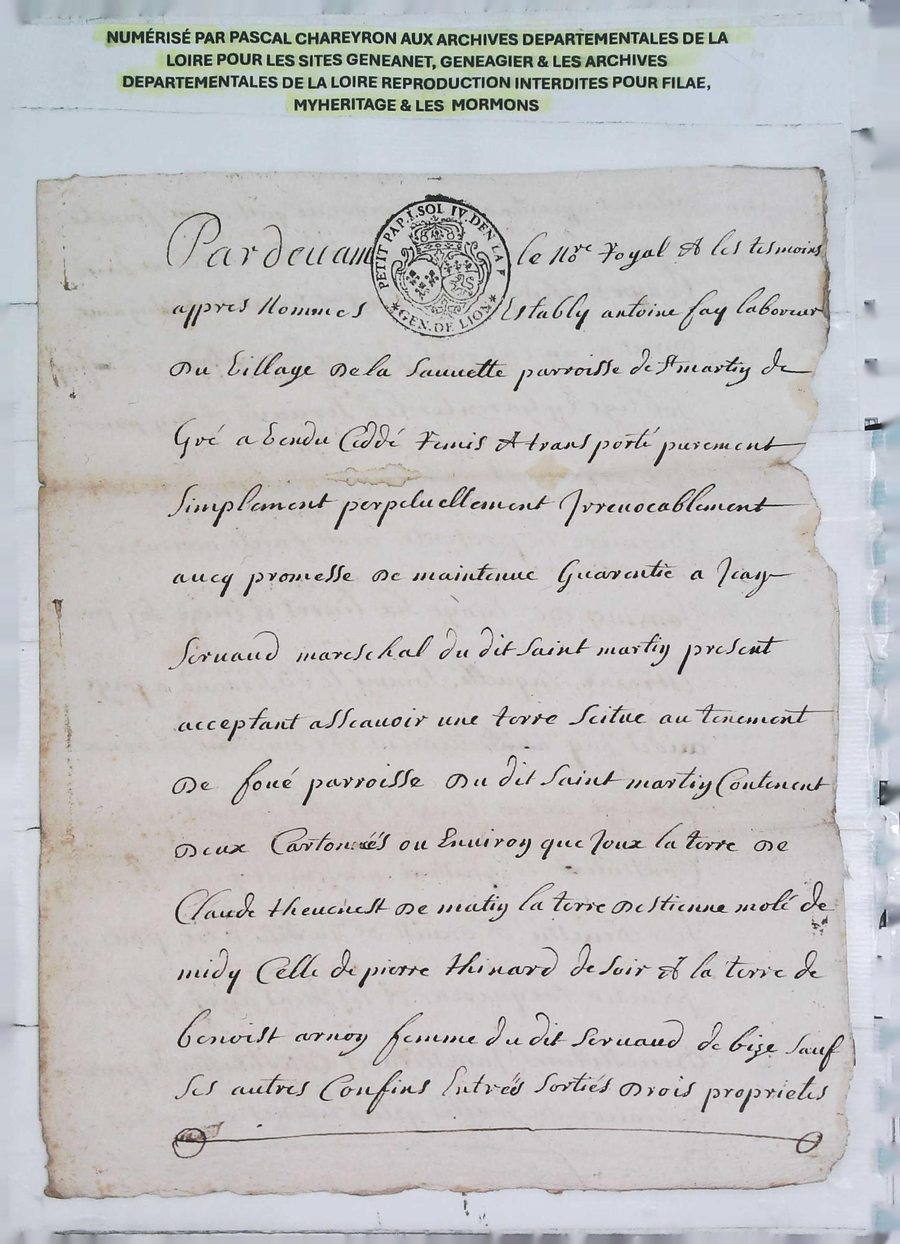 NUMÉRISÉ PAR PASCAL CHAREYRON AUX ARCHIVES DEPARTEMENTALES DE LA
LOIRE POUR LES SITES GENEANET, GENEAGIER & LES ARCHIVES
DEPARTEMENTALES DE LA LOIRE REPRODUCTION INTERDITES POUR FILAE,
MYHERITAGE & LES MORMONS
PETIT PAP. I. SOL IV. DEN LA F
GEN. DE LION
Pardeuam le No.re Royal & les tesmoins
appres Nommes Estably antoine fay laboureur
Du Village De la Sauuette parroisse de St martin de
Gré a Vendu Ceddé remis & transporté purement
Simplement perpetuellement Irreuocablement
aucq promesse De maintenue Guarentie a Jean
Seruaud mareschal du dit Saint martin present
acceptant asscauoir une terre Scitue au tenement
De foué parroisse Du dit Saint martin Contenent
Deux Cartonnés ou Enuiron que Joux la terre De
Claude theuenest De matin la terre Destienne molé de
midy Celle de pierre thinard de Soir & la terre de
benoist arnoy femme du dit Seruaud de bize Sauf
Ses autres Confins Entrés Sortiés Drois proprietes